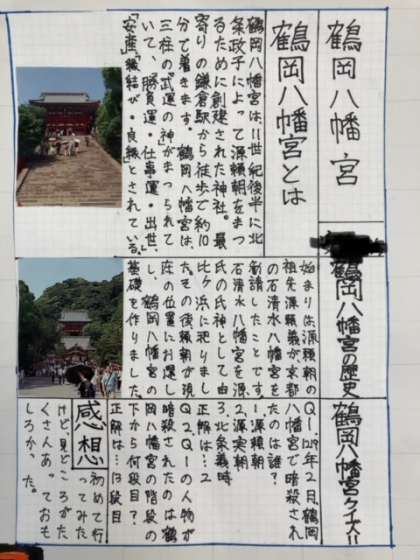 鶴岡八幡宮
鶴岡八幡宮とは
鶴岡八幡宮は、11世紀後半に北
条政子によって源頼朝をまつ
るために創建された神社。最
寄りの鎌倉駅から徒歩で約10
分で着きます。鶴岡八幡宮は、
三柱の「武運の神」がまつられて
いて、勝負運・仕事運・出世、
「安産」「縁結が・良縁」とされている。
鶴岡八幡宮の歴史
始まりは、源頼朝の
祖先源頼義が京都
の石清水八幡宮を
勧請したことです。
石清水八幡宮を源
氏の氏神として由
比ヶ浜に祀りまし
た。その後頼朝が現
在の位置にお遷し
し、鶴岡八幡宮の
基礎を作りました。
鶴岡八幡宮クイズ!!
Q1、1219年2月、鶴岡
八幡宮で暗殺され
たのは誰?
1.源頼朝
2.源実朝
3.北条義時
正解は…2
Q2、Q1の人物が
暗殺されたのは鶴
岡八幡宮の階段の
下から何段目?
正解は…13段目
感想
初めて行
ってみた
けど、見どころがた
くさんあっておも
しろかった。